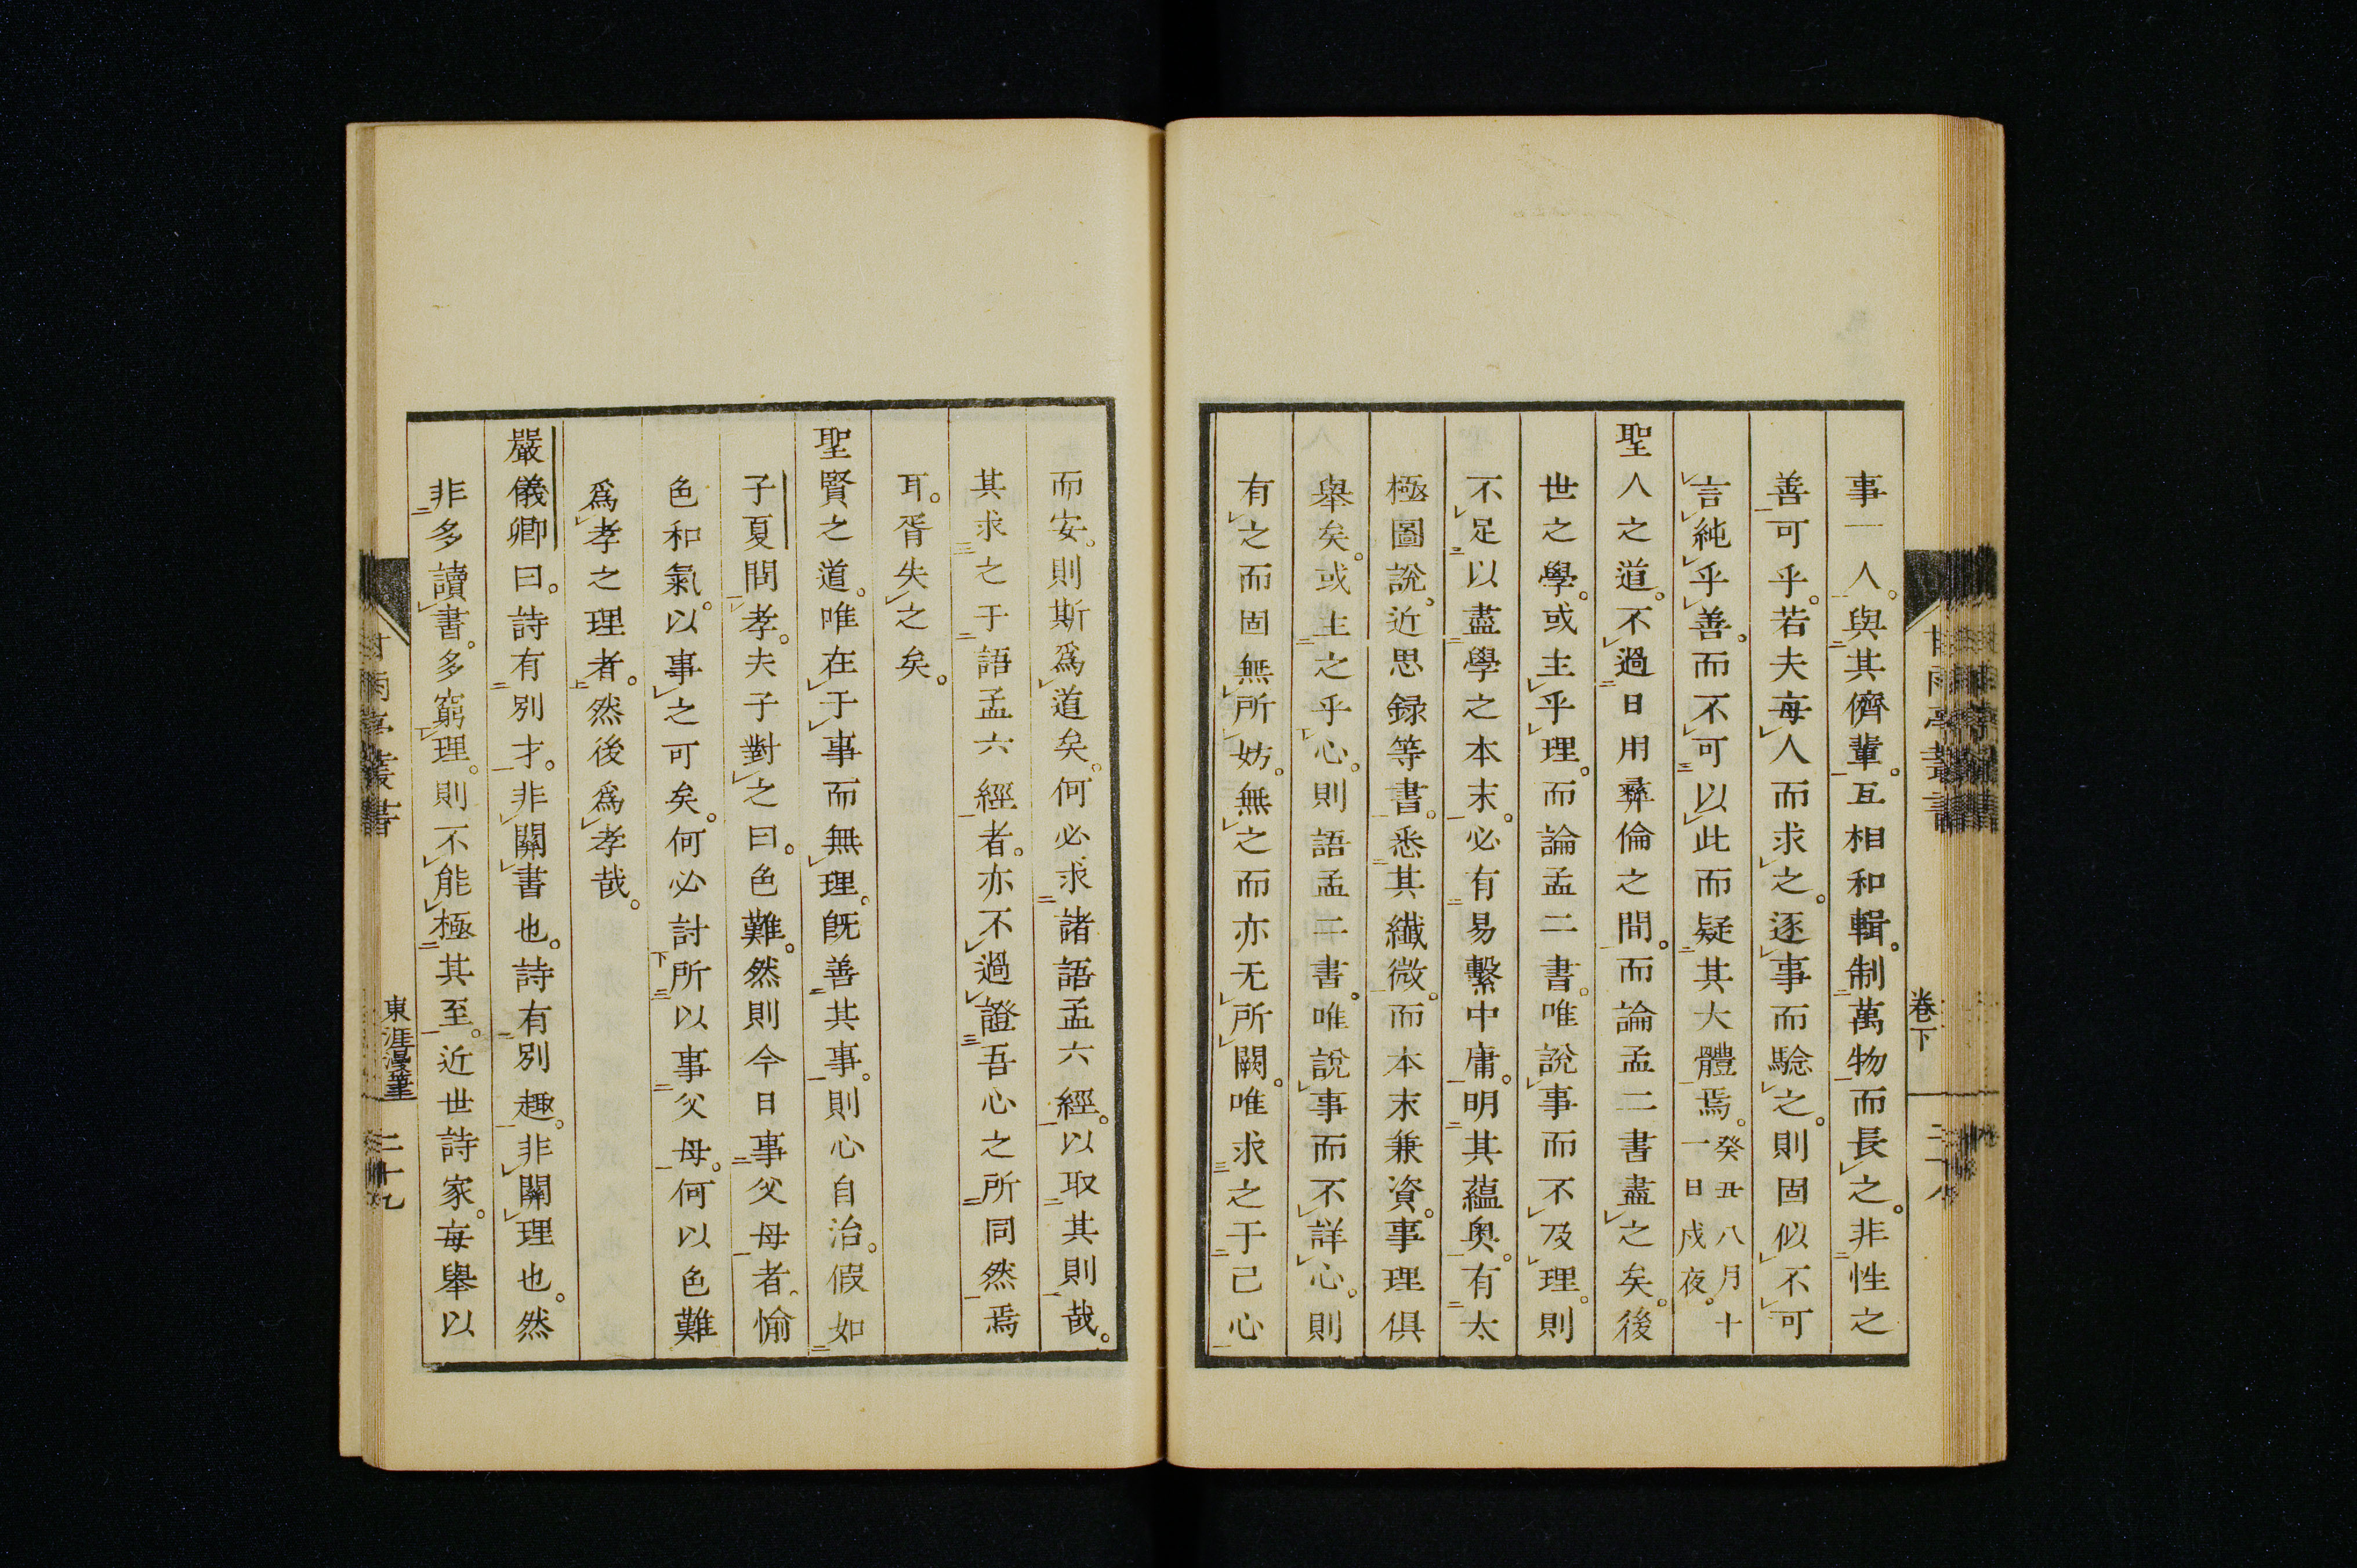 事一人。與其儕輩。互相和輯。制萬物而長之。非性之
善可乎。若夫每人而求之。逐事而驗之。則固似不可
言純乎善。而不可以此而疑其大體焉。癸丑八月十
一日戍夜。
聖人之道。不過日用彝倫之間。而論孟二書盡之矣。後
世之學。或主乎理。而論孟二書。唯說事而不及理。則
不足以盡學之本末。必有易繫中庸。明其蘊奧。有太
極圖說。近思録等書。悉其纖微。而本末兼資。事理俱
舉矣。或主之乎心。則語孟二書。唯說事而不詳心。則
有之而固無所妨。無之而亦无所闕。唯求之于己心
卷下
而安。則斯爲道矣。何必求諸語孟六經。以取其則哉。
其求之于語孟六經者。亦不過證吾心之所同然焉
耳。胥失之矣。
聖賢之道。唯在于事而無理。既善其事。則心自治。假如
子夏問孝。夫子對之曰。色難。然則今日事父母者。愉
色和氣。以事之可矣。何必討所以事父母。何以色難
爲孝之理者。然後爲孝哉。
嚴儀卿曰。詩有別才。非關書也。詩有別趣。非關理也。然
非多讀書。多窮理。則不能極其至。近世詩家。每舉以
甘雨亭叢書
東涯漫筆
二十九